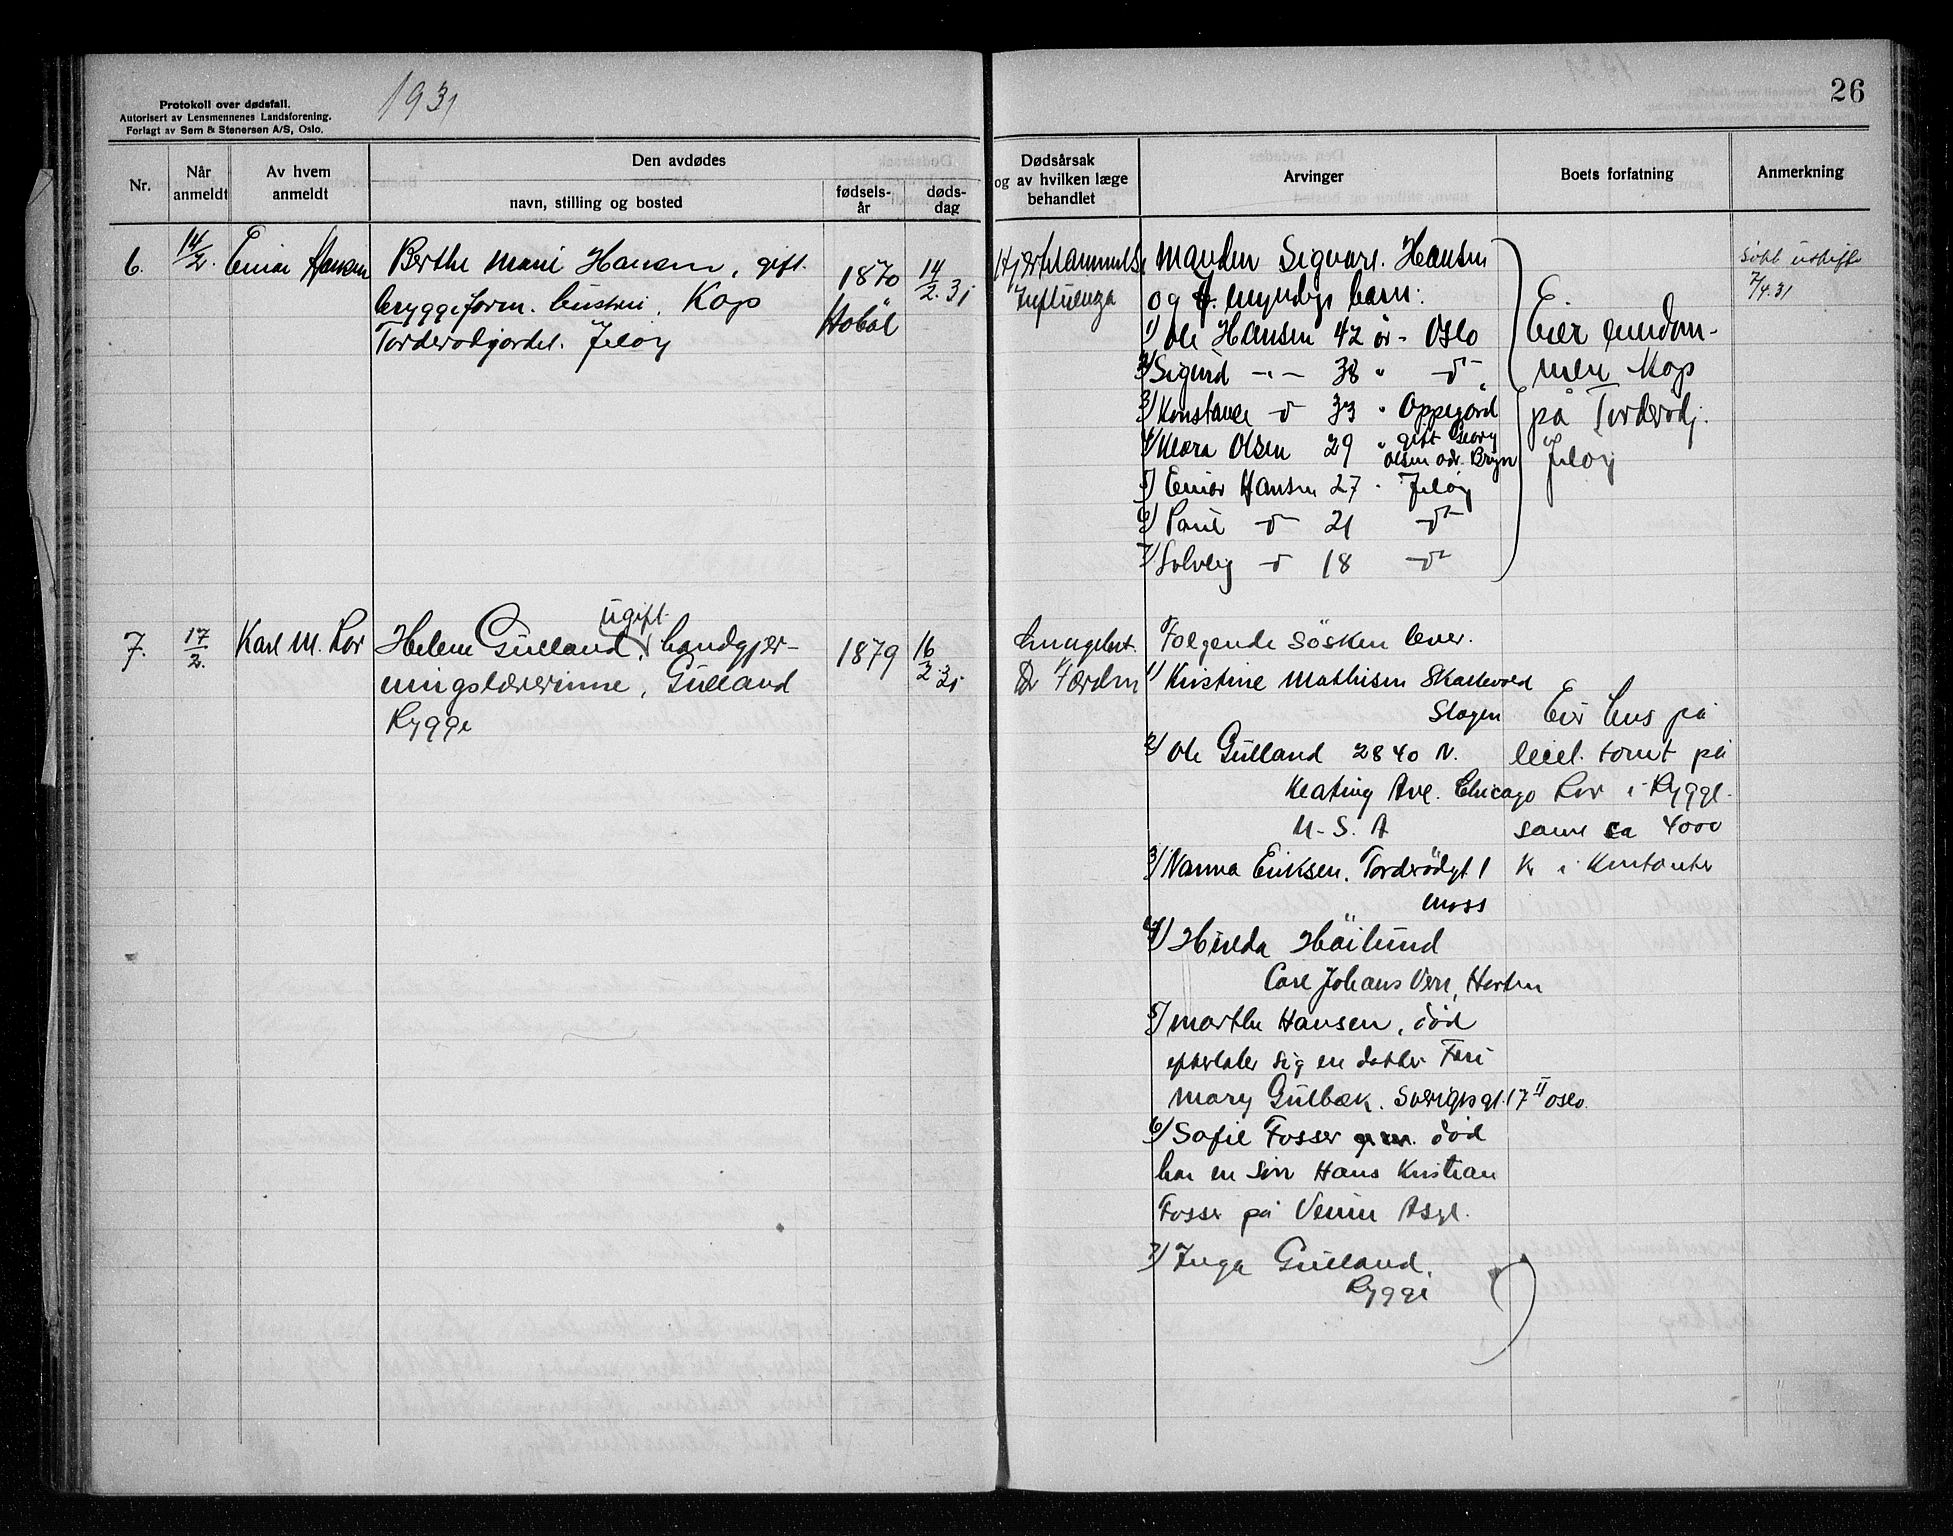 1931
26
Protokoll over dødsfall.
Autorisert av Lensmennenes Landsforening.
Forlagt av Sem & Stenersen A/S, Oslo.
Nr.
Når anmeldt
Av hvem anmeldt
Den avdødes
navn, stilling og bosted
fødsels-år
døds-dag
Dødsårsak og av hvilken læge behandlet
Arvinger
Boets forfatning
Anmerkning
6.
14/2.
Einar Hansen
Berthe Marie Hansen, gift.
bryggeform. hustru, Kap
Torderødjordet. Jeløy
1870
Hobøl
14/2.31
Influenza
Manden Sigvart. Hansen
og 7. myndige barn:
1) Ole Hansen 42 år - Oslo
2) Sigurd -"- 38 "
3) Konstance 33 " Oppegård
4) Klara Olsen 29 " gift Georg
Olsen adr. Bryn
5) Einar Hansen 27 " Jeløy
6) Paul 21
7) Solveig 18
Eier eiendom-
men Kap
på Torderødj.
Jeløy
7/4.31
7.
17/2.
Karl M. Lor
ugift
Helene Gulland, handgjer-
ningslærerinne, Gulland
Rygge
1879
16/2 31.
Lungebet.
Dr Færden
Følgende søsken lever.
1) Kristine Mathisen Skallevold
Slagen
2) Ole Gulland 2840 N.
Keating Ave. Chicago
U.S.A
3) Nanna Eriksen. Torderødgt 1
Moss
4) Hilda Höilund
Carl Johans Vern, Horten
5) Marthe Hansen, död
efterlater sig en datter Fru
Mary Gulbæk. Sverigsgt. 17 II Oslo.
6) Sofie Fosser død
har en sön Hans Kristian
Fosser på Asyl.
7) Inga Gulland,
Rygge
Eier hus på
leiet tomt på
Lor i Rygge.
samt ca 4000
kr i kontanter